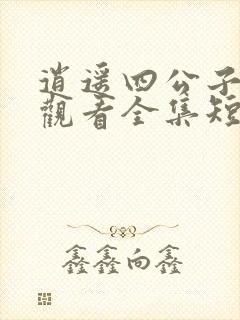 逍遥四公子
觀看全集短
鑫鑫向鑫